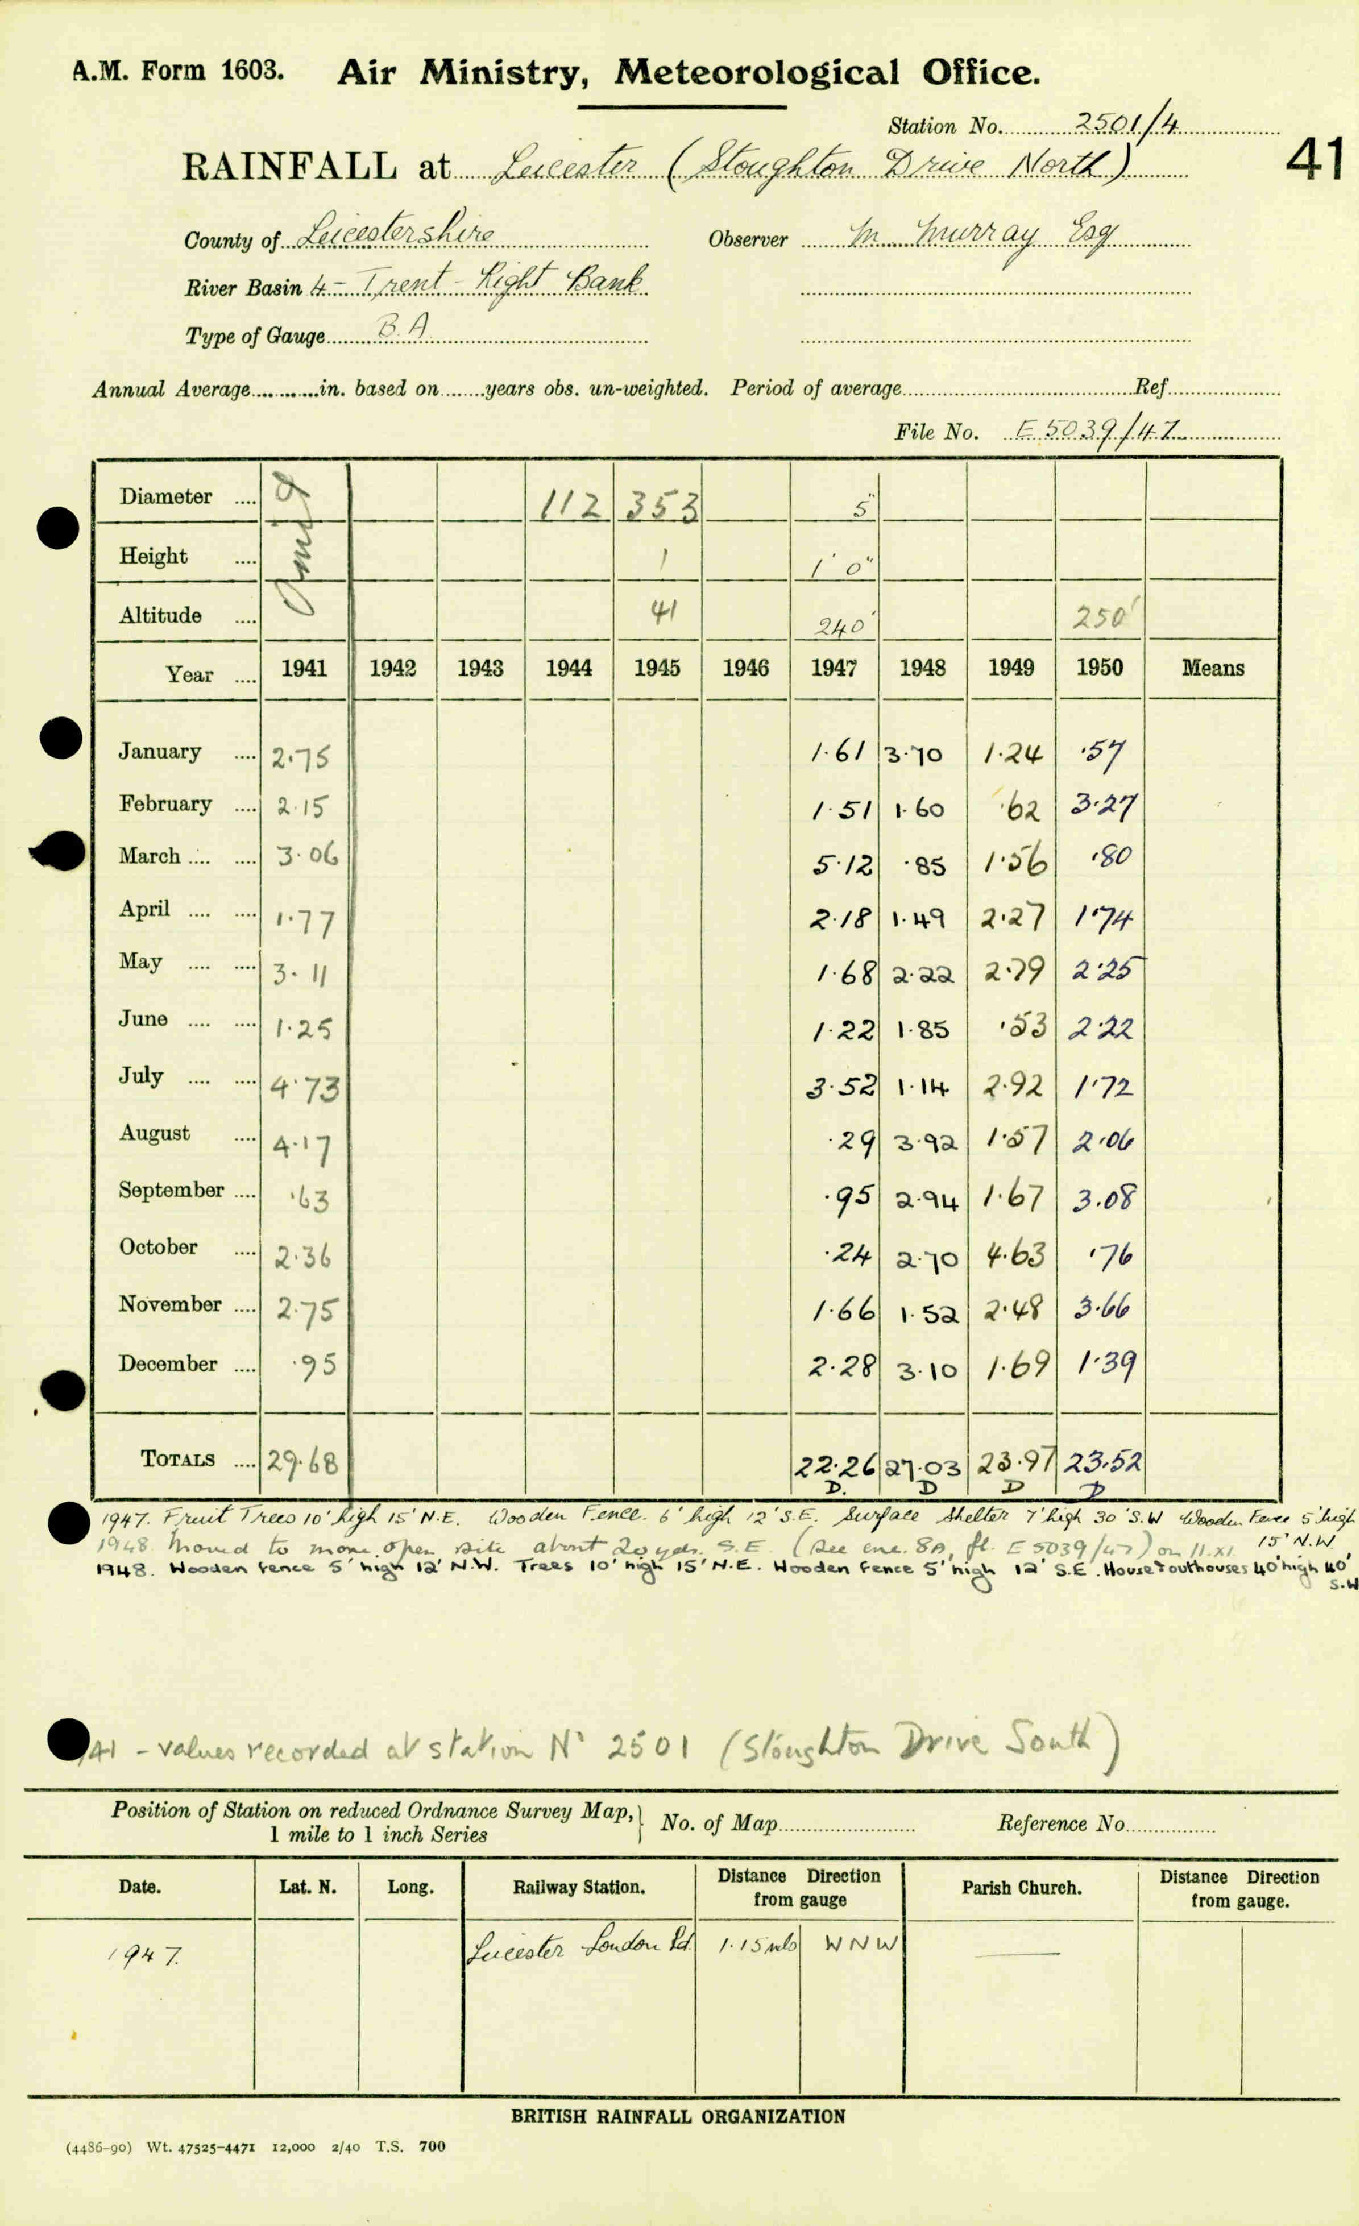 A.M. Form 1603. Air Ministry, Meteorological Office.
Station No. 2501/4
RAINFALL at Leicester (Stoughton Drive North) 41
County of Leicestershire Observer M. Murray Esq
River Basin 4 - Trent - Right Bank
Type of Gauge B.A
Annual Average in. based on years obs. un-weighted. Period of average Ref
File No. E 5039/47
Diameter .... Omit 112 353 5"
Height .... 1 1' 0"
Altitude .... 41 240' 250'
Year .... 1941 1942 1943 1944 1945 1946 1947 1948 1949 1950 Means
January .... 2.75 1.61 3.70 1.24 .57
February .... 2.15 1.51 1.60 .62 3.27
March .... .... 3.06 5.12 .85 1.56 .80
April .... .... 1.77 2.18 1.49 2.27 1.74
May .... .... 3.11 1.68 2.22 2.79 2.25
June .... .... 1.25 1.22 1.85 .53 2.22
July .... .... 4.73 3.52 1.14 2.92 1.72
August .... 4.17 .29 3.92 1.57 2.06
September .... .63 .95 2.94 1.67 3.08
October .... 2.36 .24 2.70 4.63 .76
November .... 2.75 1.66 1.52 2.48 3.66
December .... .95 2.28 3.10 1.69 1.39
TOTALS .... 29.68 22.26 27.03 23.97 23.52
D. D D D
1947. Fruit Trees 10' high 15' N.E. Wooden Fence 6' high 12' S.E. Surface Shelter 7' high 30' S.W Wooden Fence 5' high
15' N.W.
1948. Moved to more open site about 20 yds. S.E. (see enc. 8A, fl. E 5039/47) on 11.xi.
1948. Wooden fence 5' high 12' N.W. Trees 10' high 15' N.E. Wooden fence 5' high 12' S.E. House & outhouses 40' high 40'
S.W
41 - values recorded at station No 2501 (Stoughton Drive South)
Position of Station on reduced Ordnance Survey Map, 1 mile to 1 inch Series } No. of Map Reference No.
Date. Lat. N. Long. Railway Station. Distance Direction from gauge Parish Church. Distance Direction from gauge.
1947. Leicester London Rd 1.15 mls WNW
BRITISH RAINFALL ORGANIZATION
(4486-90) Wt. 47525-4471 12,000 2/40 T.S. 700